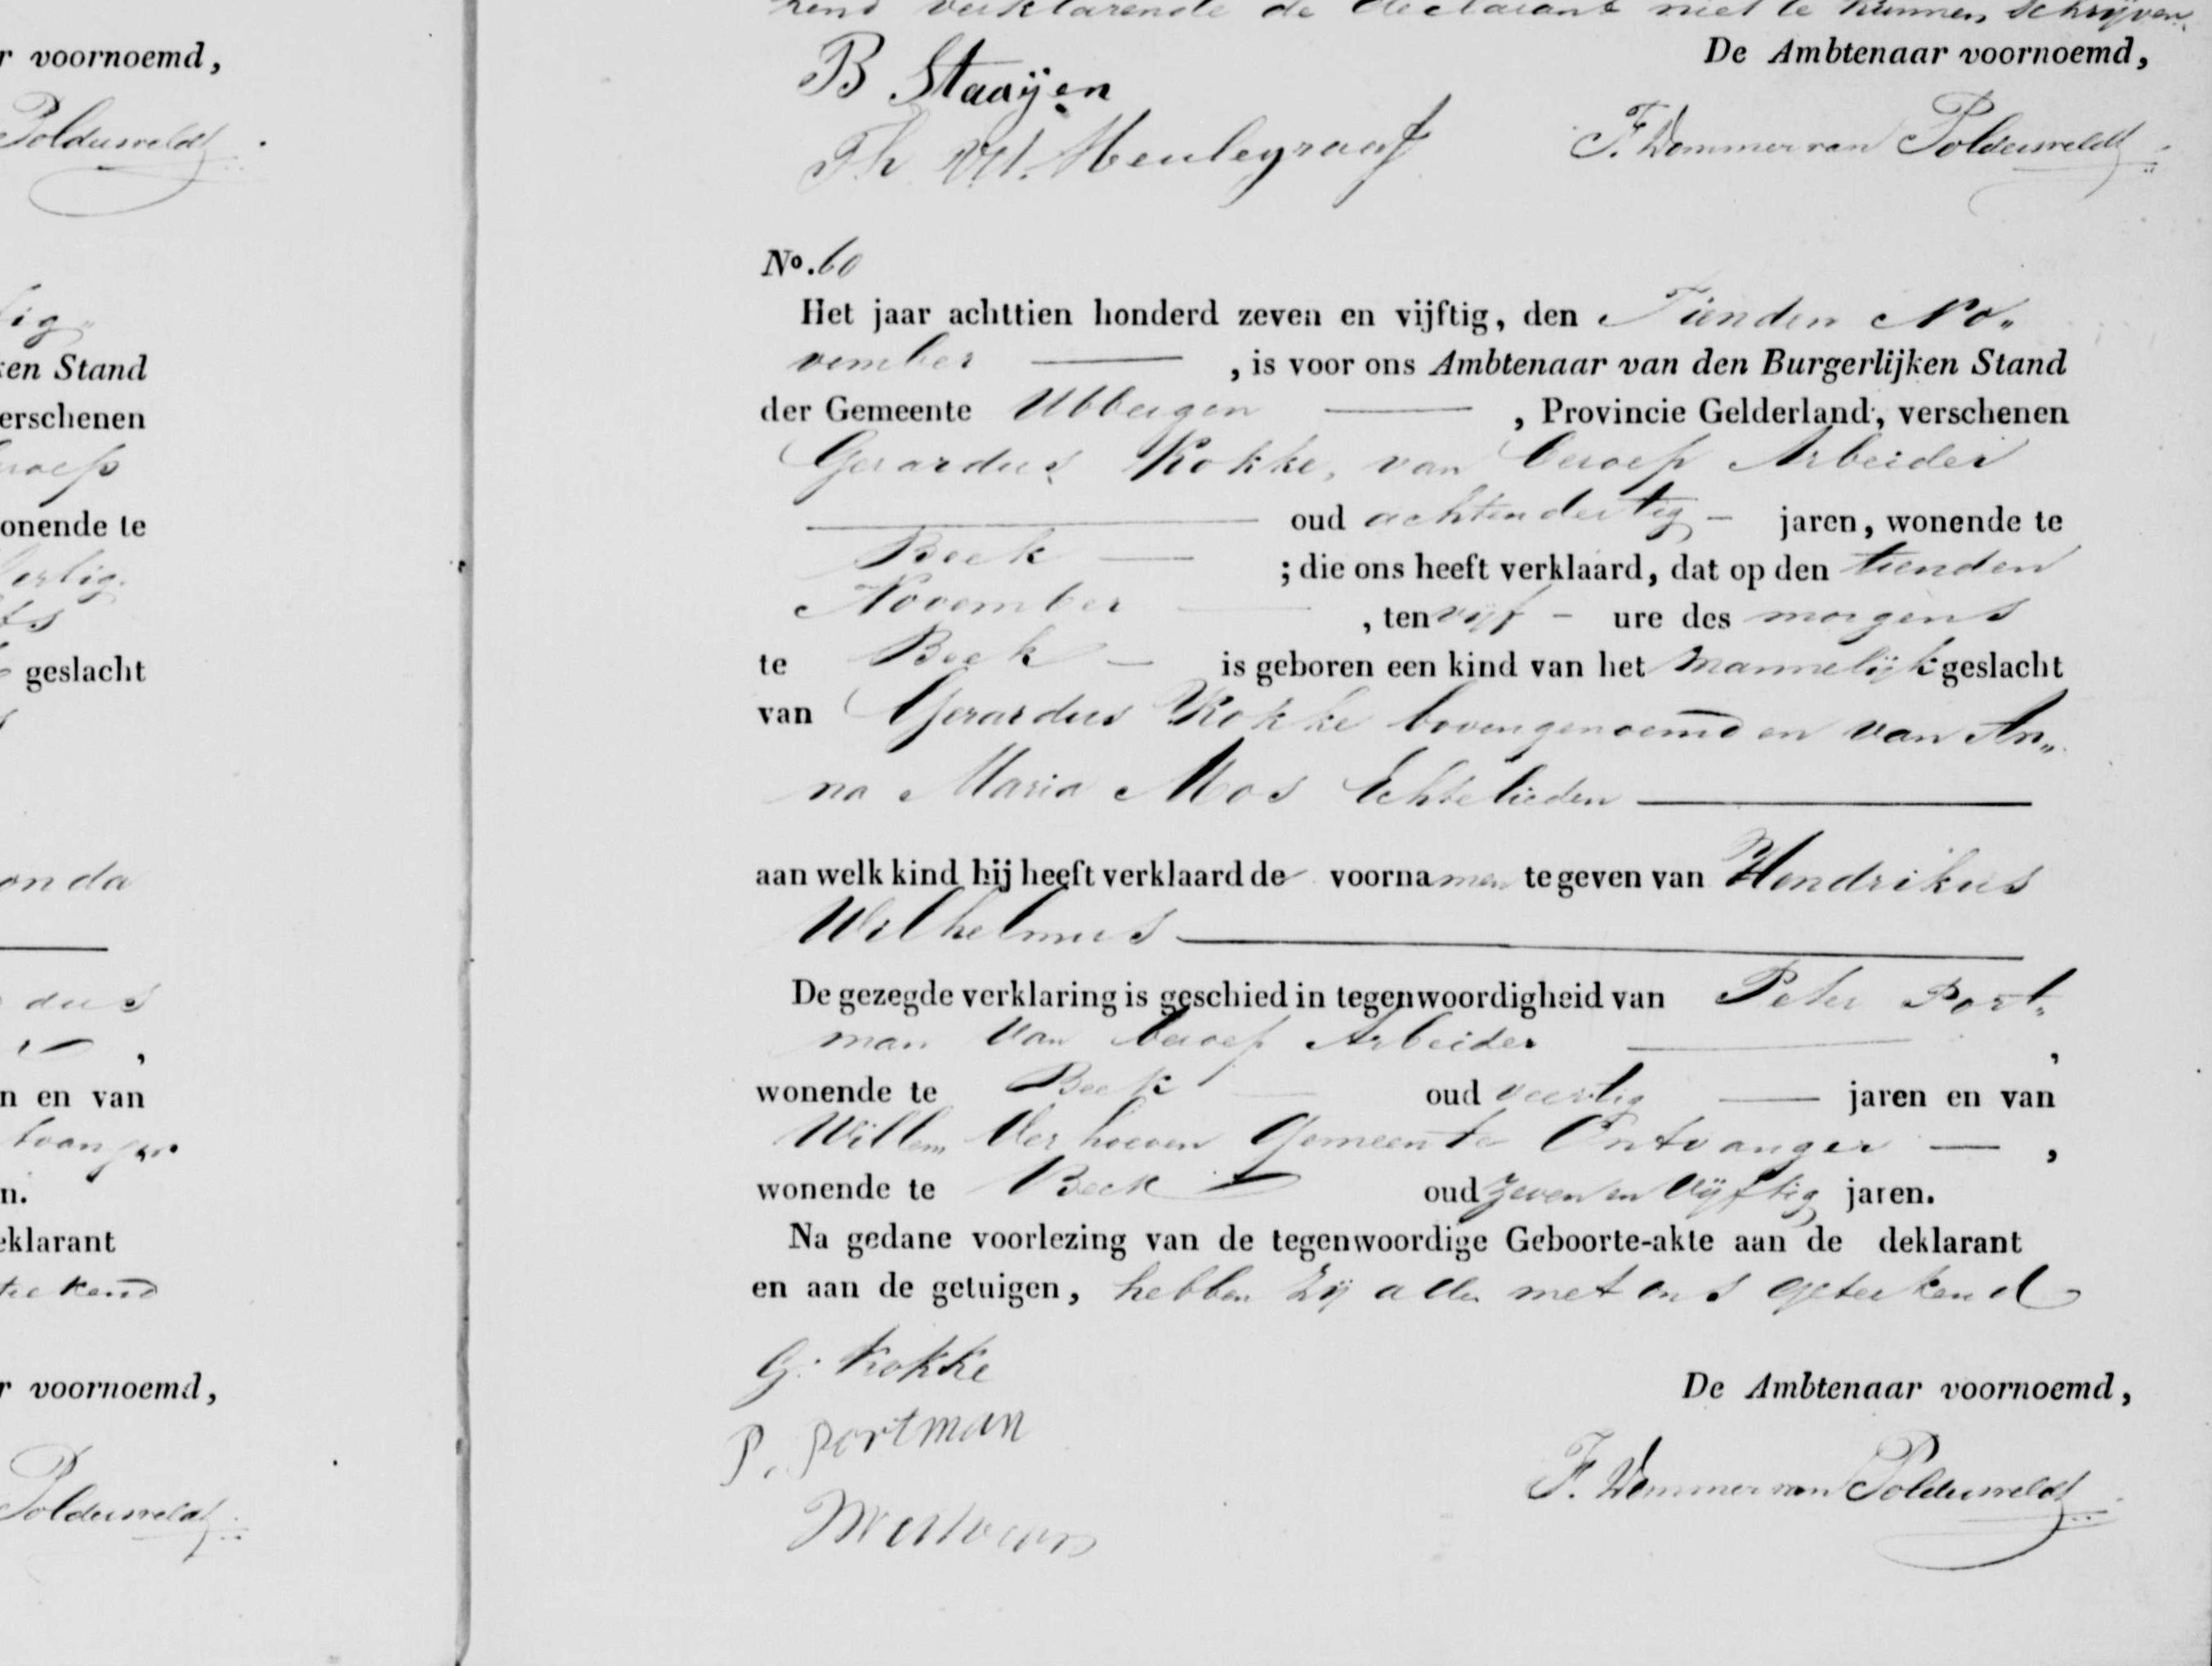 r voornoemd,
Polderveldt
ig
ken Stand
erschenen
roep
onende te
ertig
ts
geslacht
onda
dus
,
n en van
tvanger
n.
eklarant
teekend
r voornoemd,
Polderveldt
kend verklarende de declarant niet te kunnen schrijven.
De Ambtenaar voornoemd,
B Staaÿen
Th Meulegraaf
F. Dommer van Polderveldt
No. 60
Het jaar achttien honderd zeven en vijftig, den Tienden No„
vember , is voor ons Ambtenaar van den Burgerlijken Stand
der Gemeente Ubbergen , Provincie Gelderland, verschenen
Gerardus Kokke, van beroep Arbeider
oud achtendertig jaren, wonende te
Beek ; die ons heeft verklaard, dat op den tienden
November , ten vijf ure des morgens
te Beek is geboren een kind van het mannelijk geslacht
van Gerardus Kokke bovengenoemd en van An„
na Maria Mos Echtelieden
aan welk kind hij heeft verklaard de voornamen te geven van Hendrikus
Wilhelmus
De gezegde verklaring is geschied in tegenwoordigheid van Peter Port„
man van beroep Arbeider ,
wonende te Beek oud veertig jaren en van
Willem Verhoeven Gemeente Ontvanger ,
wonende te Beek oud Zeven en Vijftig jaren.
Na gedane voorlezing van de tegenwoordige Geboorte-akte aan de deklarant
en aan de getuigen, hebben zij allen met ons geteekend
G. Kokke
De Ambtenaar voornoemd,
P. portman
F. Dommer van Polderveldt